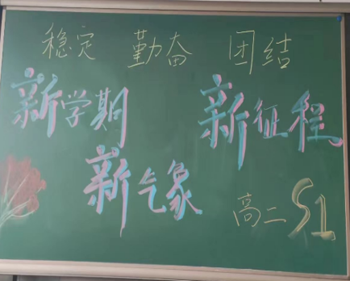 稳定 勤奋 团结
新学期 新征程
新气象
高二 S1